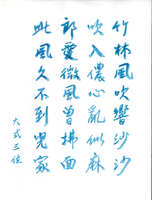 竹林風吹響沙沙
吹入儂心亂似麻
郎愛微風曾拂面
此風久不到兒家
大武三位